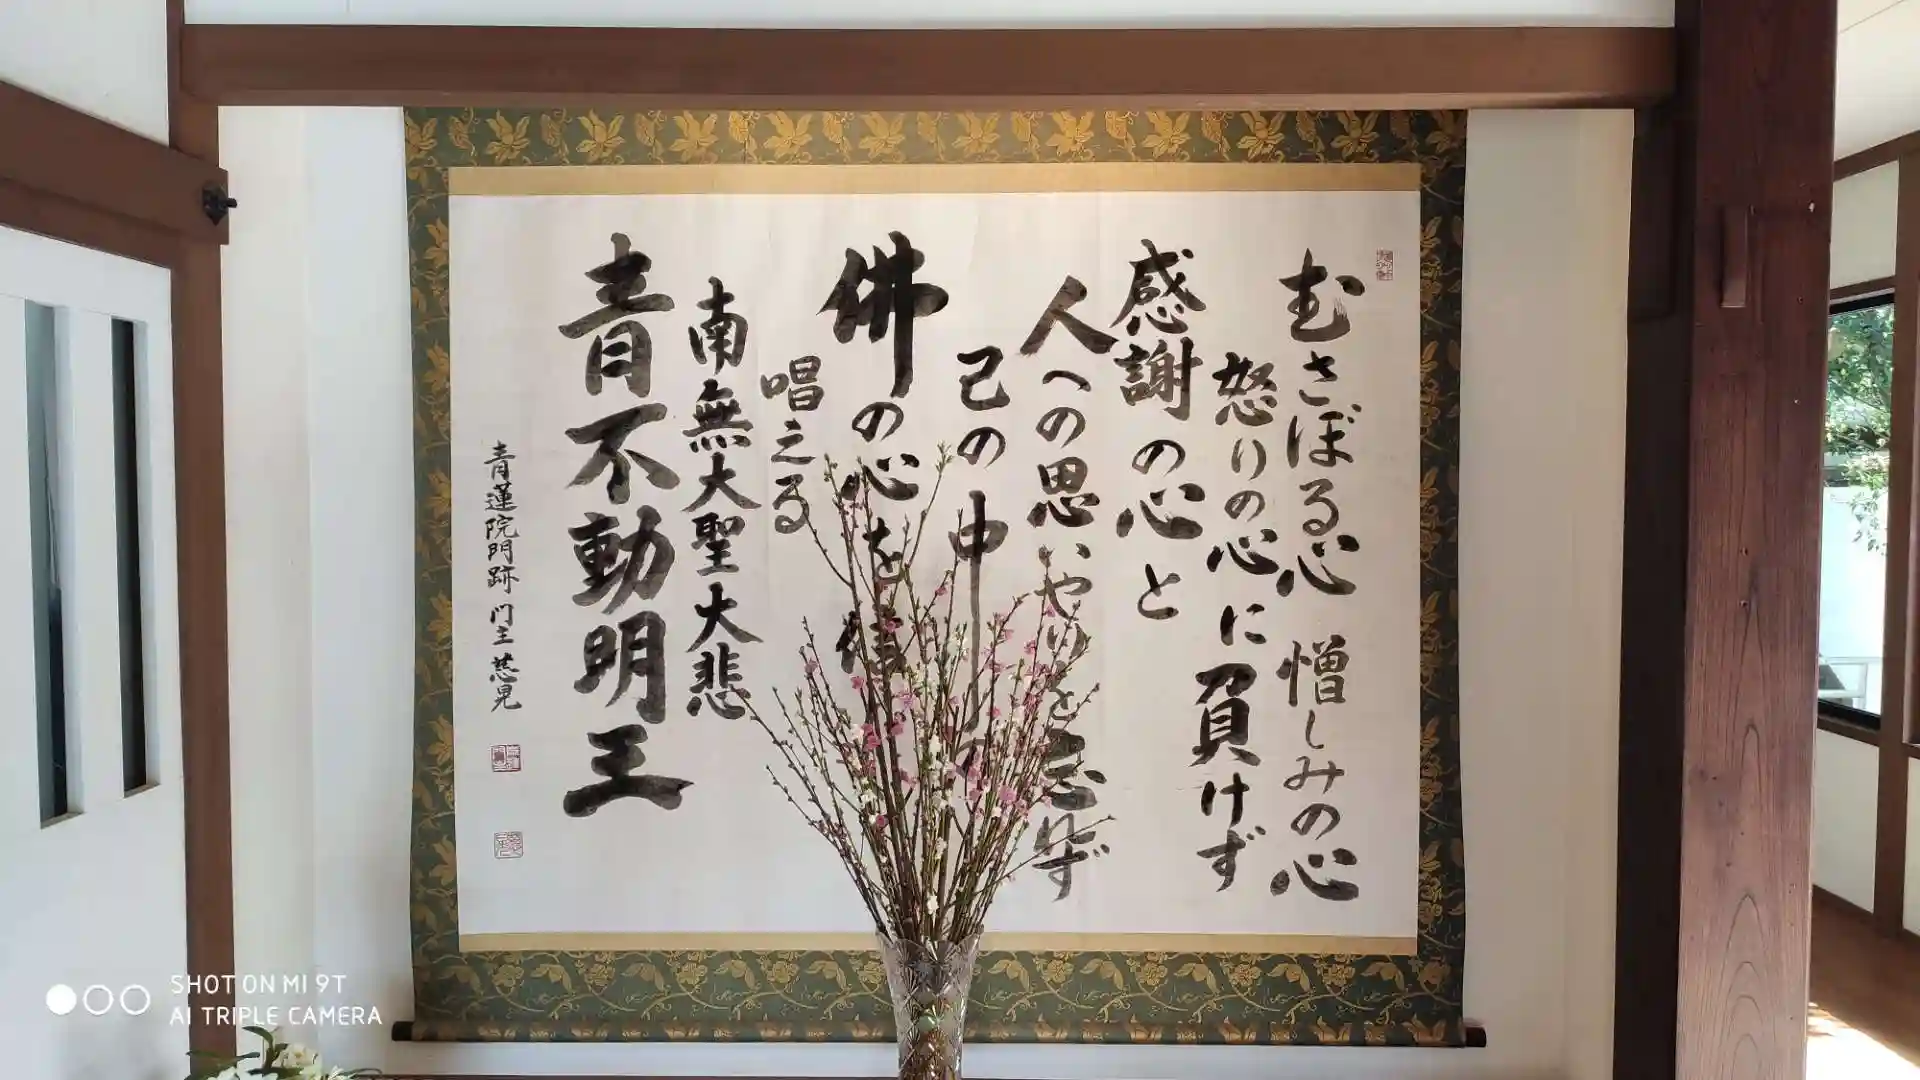 むさぼる心 憎しみの心
怒りの心に負けず
感謝の心と
人への思いやりを忘れず
己の中の
佛の心を信じ
唱える
南無大聖大悲
青不動明王
青蓮院門跡 门主 慈晃
SHOT ON MI 9T
AI TRIPLE CAMERA